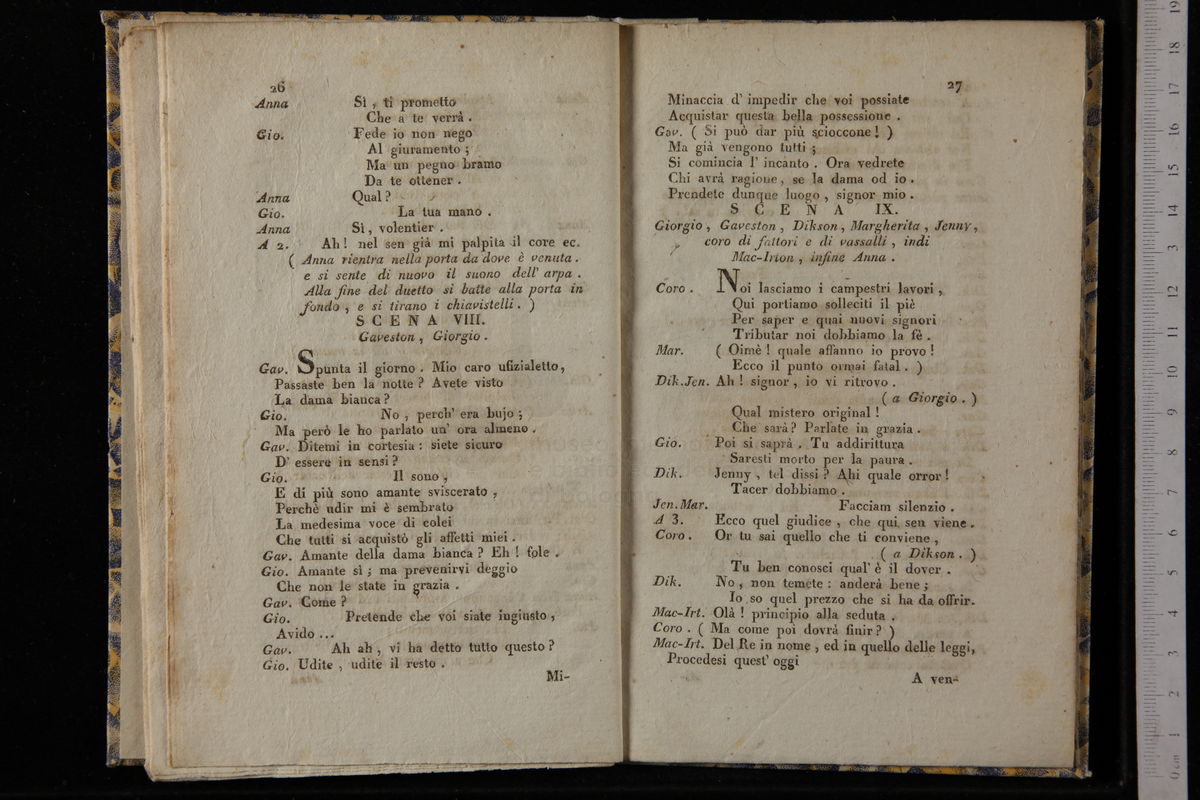 26
Anna Sì , ti prometto
Che a te verrà .
Gio. Fede io non nego
Al giuramento ;
Ma un pegno bramo
Da te ottener .
Anna Qual ?
Gio. La tua mano .
Anna Sì , volentier .
A 2. Ah ! nel sen già mi palpita il core ec.
( Anna rientra nella porta da dove è venuta .
e si sente di nuovo il suono dell' arpa .
Alla fine del duetto si batte alla porta in
fondo , e si tirano i chiavistelli . )
SCENA VIII.
Gaveston , Giorgio .
Gav. Spunta il giorno . Mio caro ufizialetto ,
Passaste ben la notte ? Avete visto
La dama bianca ?
Gio. No , perch' era bujo ;
Ma però le ho parlato un' ora almeno .
Gav. Ditemi in cortesia : siete sicuro
D' essere in sensi ?
Gio. Il sono ,
E di più sono amante sviscerato ,
Perchè udir mi è sembrato
La medesima voce di colei
Che tutti si acquistò gli affetti miei .
Gav. Amante della dama bianca ? Eh ! fole .
Gio. Amante sì ; ma prevenirvi deggio
Che non le state in grazia .
Gav. Come ?
Gio. Pretende che voi siate ingiusto ,
Avido ...
Gav. Ah ah , vi ha detto tutto questo ?
Gio. Udite , udite il resto .
Mi-
27
Minaccia d' impedir che voi possiate
Acquistar questa bella possessione .
Gav. ( Si può dar più scioccone ! )
Ma già vengono tutti ;
Si comincia l' incanto . Ora vedrete
Chi avrà ragione , se la dama od io .
Prendete dunque luogo , signor mio .
SCENA IX.
Giorgio , Gaveston , Dikson , Margherita , Jenny ,
coro di fattori e di vassalli , indi
Mac-Irton , infine Anna .
Coro . Noi lasciamo i campestri lavori ,
Qui portiamo solleciti il piè
Per saper e quai nuovi signori
Tributar noi dobbiamo la fè .
Mar. ( Oimè ! quale affanno io provo !
Ecco il punto ormai fatal . )
Dik. Jen. Ah ! signor , io vi ritrovo .
( a Giorgio . )
Qual mistero original !
Che sarà ? Parlate in grazia .
Gio. Poi si saprà . Tu addirittura
Saresti morto per la paura .
Dik. Jenny , tel dissi ? Ahi quale orror !
Tacer dobbiamo .
Jen. Mar. Facciam silenzio .
A 3. Ecco quel giudice , che qui sen viene .
Coro . Or tu sai quello che ti conviene ,
( a Dikson . )
Tu ben conosci qual' è il dover .
Dik. No , non temete : anderà bene ;
Io so quel prezzo che si ha da offrir .
Mac-Irt. Olà ! principio alla seduta .
Coro . ( Ma come poi dovrà finir ? )
Mac-Irt. Del Re in nome , ed in quello delle leggi,
Procedesi quest' oggi
A ven-
0 cm 1 2 3 4 5 6 7 8 9 10 11 12 13 14 15 16 17 18 19